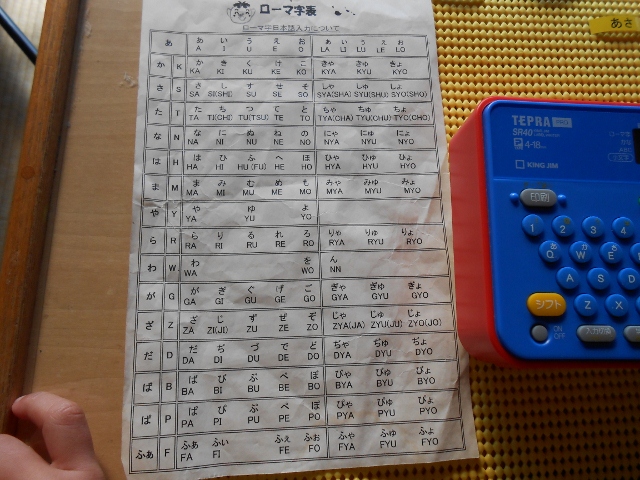 ローマ字表
ローマ字日本語入力について
あ あ い う え お ぁ ぃ ぅ ぇ ぉ
A I U E O LA LI LU LE LO
か K か き く け こ きゃ きゅ きょ
KA KI KU KE KO KYA KYU KYO
さ S さ し す せ そ しゃ しゅ しょ
SA SI(SHI) SU SE SO SYA(SHA) SYU(SHU) SYO(SHO)
た T た ち つ て と ちゃ ちゅ ちょ
TA TI(CHI) TU(TSU) TE TO TYA(CHA) TYU(CHU) TYC(CHO)
な N な に ぬ ね の にゃ にゅ にょ
NA NI NU NE NO NYA NYU NYO
は H は ひ ふ へ ほ ひゃ ひゅ ひょ
HA HI HU(FU) HE HO HYA HYU HYO
ま M ま み む め も みゃ みゅ みょ
MA MI MU ME MO MYA MYU MYO
や Y や ゆ よ
YA YU YO
ら R ら り る れ ろ りゃ りゅ りょ
RA RI RU RE RO RYA RYU RYO
わ W わ を ん
WA WO NN
が G が ぎ ぐ げ ご ぎゃ ぎゅ ぎょ
GA GI GU GE GO GYA GYU GYO
ざ Z ざ じ ず ぜ ぞ じゃ じゅ じょ
ZA ZI(JI) ZU ZE ZO ZYA(JA) ZYU(JU) ZYO(JO)
だ D だ ぢ づ で ど ぢゃ ぢゅ ぢょ
DA DI DU DE DO DYA DYU DYO
ば B ば び ぶ べ ぼ びゃ びゅ びょ
BA BI BU BE BO BYA BYU BYO
ぱ P ぱ ぴ ぷ ぺ ぽ ぴゃ ぴゅ ぴょ
PA PI PU PE PO PYA PYU PYO
ふぁ F ふぁ ふぃ ふぇ ふぉ ふゃ ふゅ ふょ
FA FI FE FO FYA FYU FYO
あさ
TEPRA PRO
SR40
4-18
KING JIM
印刷
1 2 3 4
Q W E
A S D
シフト Z X
ON
OFF
入力切替